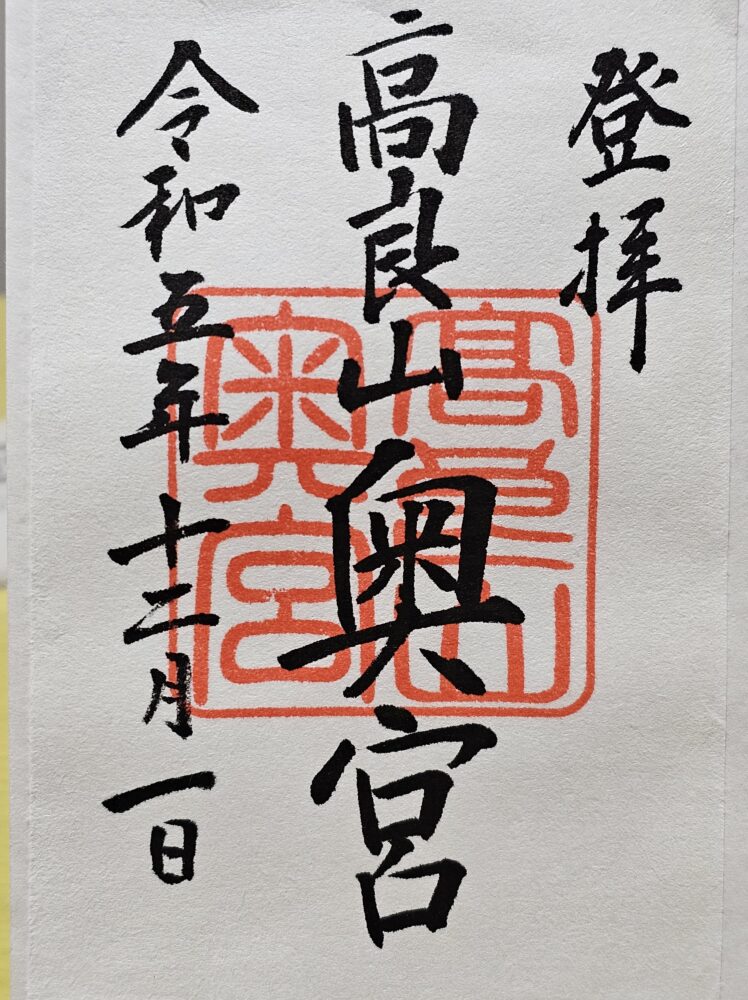 登拝
高良山奥宮
令和五年十二月一日
高良山
奥宮